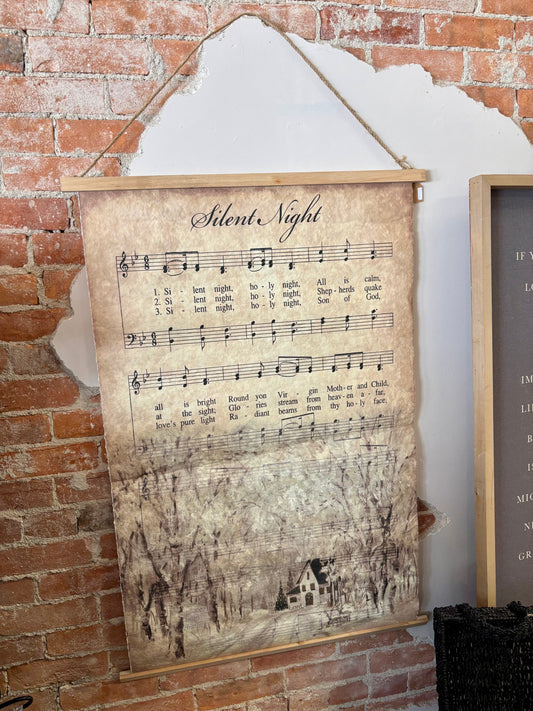 Silent Night
1. Si - lent night, ho - ly night, All is calm,
2. Si - lent night, ho - ly night, Shep - herds quake
3. Si - lent night, ho - ly night, Son of God,
all is bright Round you Vir - gin Moth - er and Child,
at the sight; Glo - ries stream from heav - en a - far,
love's pure light Ra - diant beams from thy ho - ly face,
IF Y
LO
IM
LI
B
IS
MIG
NO
GR